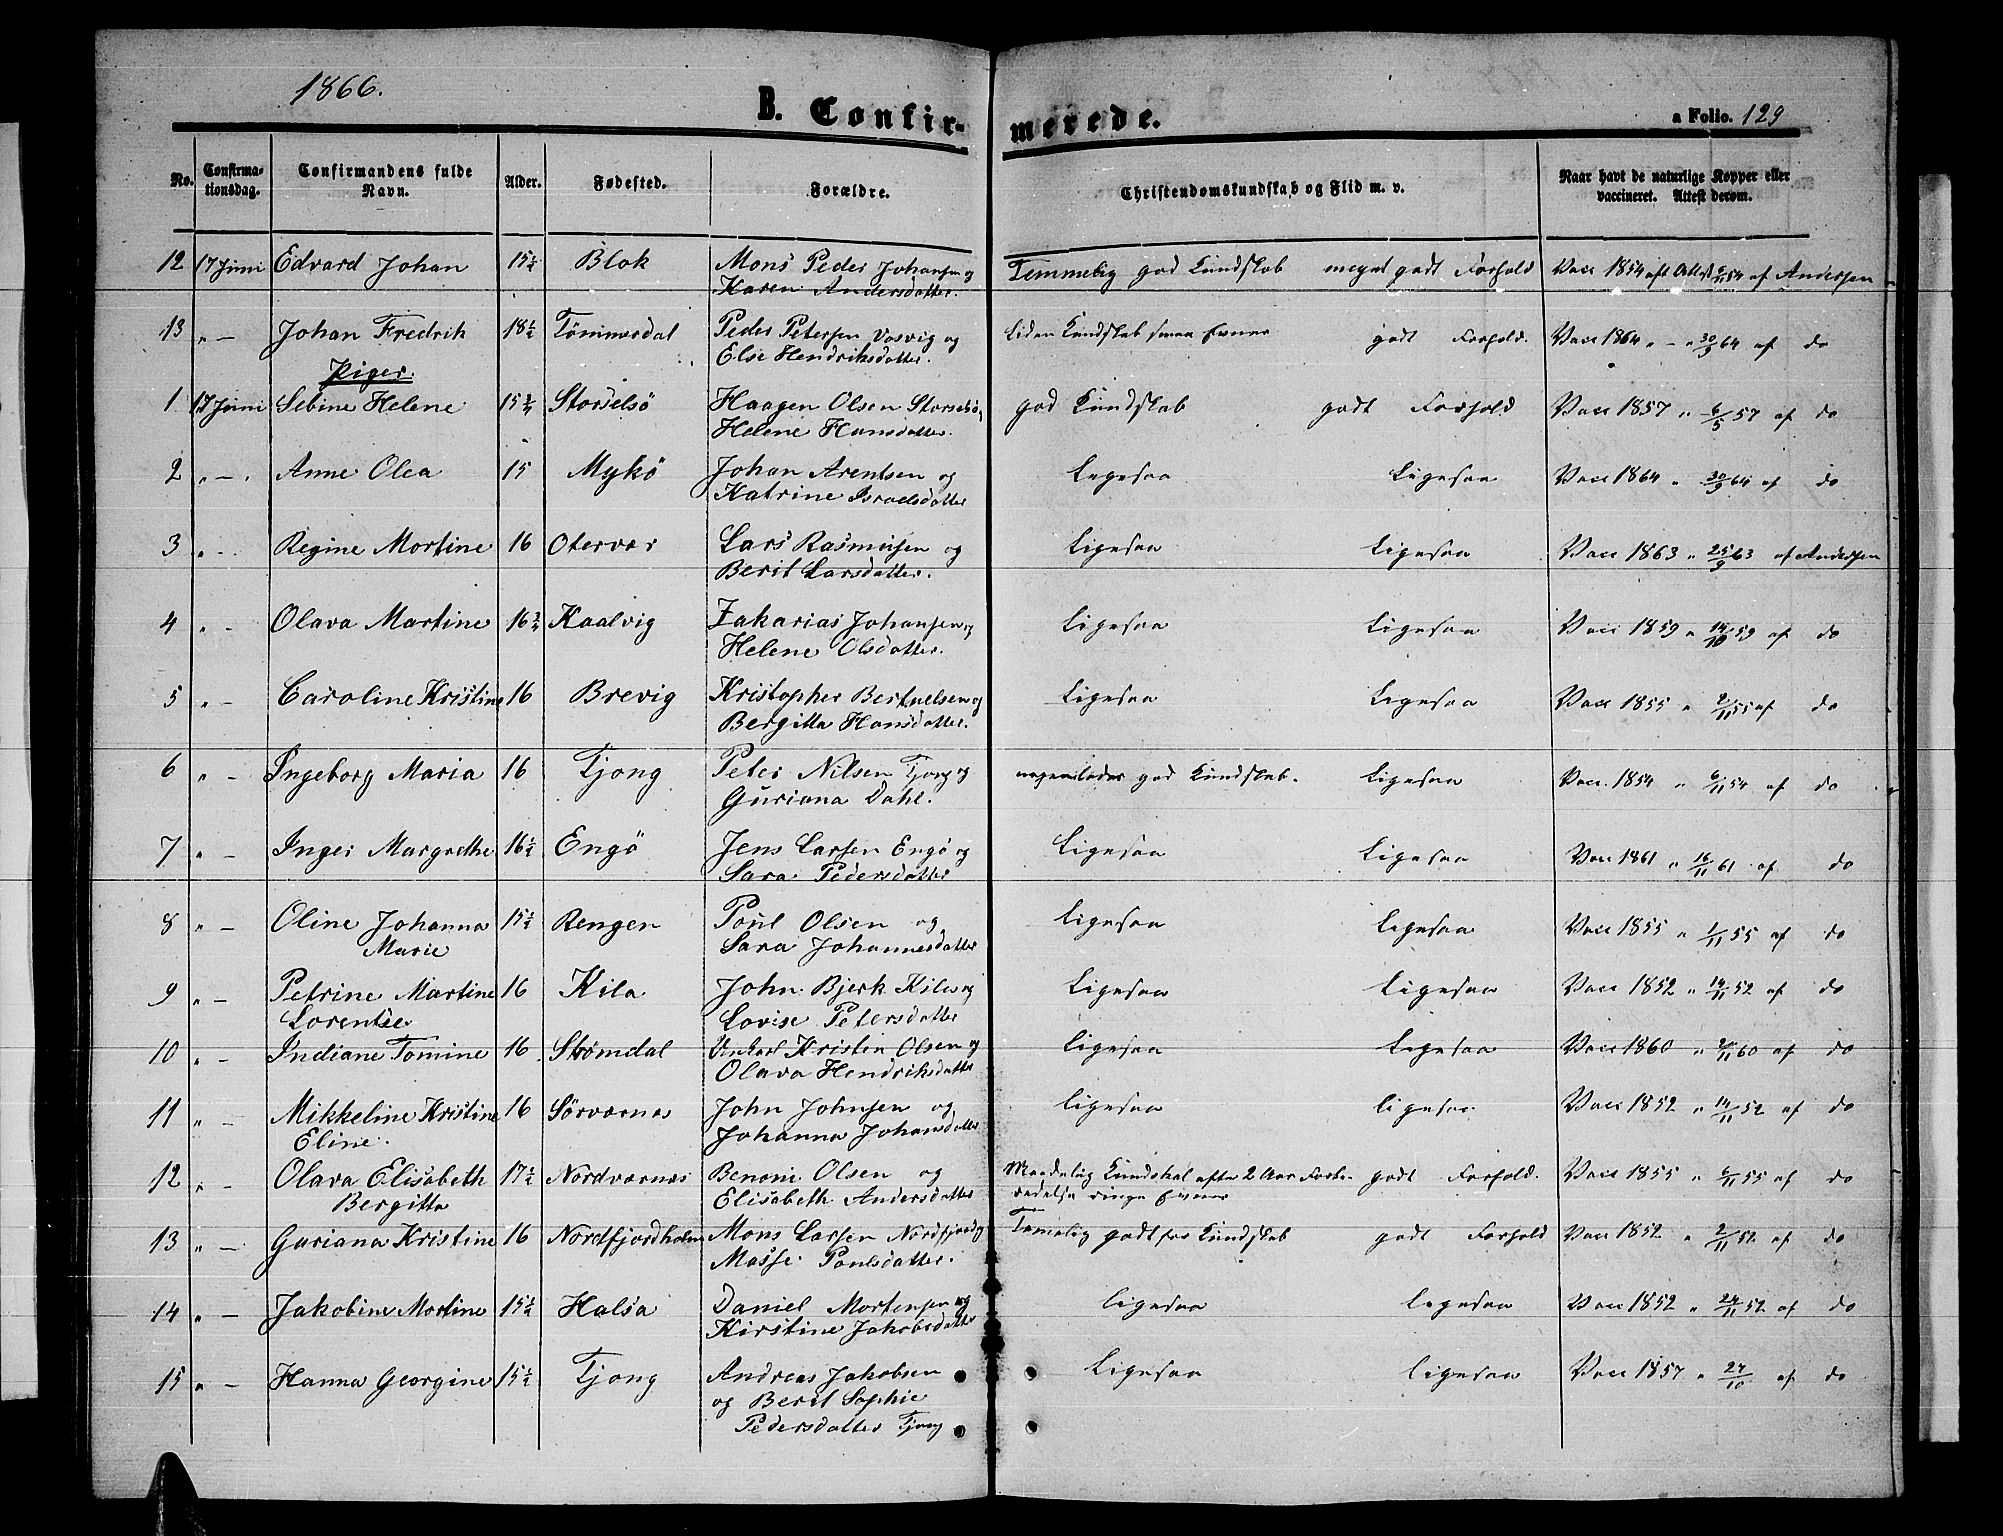 1866.
B. Confir-
merede.
a Folio. 129
No.
Confirma-
tionsdag.
Confirmandens fulde
Navn.
Alder.
Fødested.
Forældre.
Christendomskundskab og Flid m. v.
Naar havt de naturlige Kopper eller
vaccineret. Attest derom.
12 17 Juni Edvard Johan 15½ Blok Mons Peder Johansen og Temmelig god Kundskab meget godt Forhold Vacc 1854 aft Attest 54 af Andersen
Karen Andersdatter.
13 " — Johan Fredrik 18½ Tömmerdal Peder Petersen Vosvig og Liden Kundskab smaa Evner godt Forhold. Vacc 1864 " – " 30/9 64 af do
Else Hendriksdatter.
Piger.
1 17 Juni Sebine Helene 15¾ Storselsö Haagen Olsen Storselsö, god Kundskab godt Forhold Vacc 1857 " 6/5 57 af do
Helene Hansdatter.
2 " —. Anne Olea 15 Mykö Johan Arentsen og Ligesaa Ligesaa Vacc 1864 " 30/9 64 af do
Katrine Israelsdatter
3 " — Regine Mortine 16 Otervær Lars Rasmusen og Ligesaa Ligesaa Vacc 1863 " 25/9 63 af Andersen
Berit Larsdatter.
4 " — Olava Martine 16¾ Kaalvig Zakarias Johansen og Ligesaa Ligesaa Vacc 1859 " 14/10 59 af do
Helene Olsdatter.
5 " — Caroline Kristine 16 Brevig Kristopher Bertnelsen og Ligesaa Ligesaa Vacc 1855 " 2/11 55 af do
Bergitta Hansdatter.
6 " — Ingeborg Maria 16 Tjong Peter Nilsen Tjong og god Kundskab. Ligesaa Vacc. 1854 " 6/11 54 af do
Guriana Dahl.
7 " — Inger Margrethe 16½ Engö Jens Larsen Engö og Ligesaa Ligesaa Vacc 1861 " 16/11 61 af do
Sara Pedersdatter
8 " — Oline Johanna 15½ Rengen Poul Olsen og Ligesaa Ligesaa Vacc 1855 " 1/11 55 af do
Marie Sara Johannesdatter
9 " — Petrine Martine 16 Kila John Bjerk Kila og Ligesaa Ligesaa Vacc 1852 " 14/11 52 af do
Lorentse Lovise Petersdatter
10 " — Indiane Tomine 16 Strömdal Kristen Olsen og Ligesaa Ligesaa Vacc 1860 " 2/11 60 af do
Olava Hendriksdatter
11 " — Mikkeline Kristine 16 Sörværnes John Johnsen og Ligesaa Ligesaa Vacc 1852 " 14/11 52 af do
Eline. Johanna Johansdatter
12 " — Olava Elisabeth 17½ Nordværnes Benoni Olsen og Maadelig Kundskab efter 2 Aars Forbe- godt Forhold. Vacc 1855 " 6/11 55 af do
Bergitta Elisabeth Andersdatter redelse ringe Evner
13 " — Guriana Kristine 16 Nordfjordholm Mons Larsen Nordfjord og Temelig godt for Kundskab godt Forhold Vacc 1852 " 2/11 52 af do
Masse Poulsdatter.
14 " — Jakobine Mortine 15½ Halsa Daniel Mortensen og Ligesaa Ligesaa Vacc 1852 " 24/11 52 af do
Kirstine Jakobsdatter
15 " — Hanna Georgine 15½ Tjong Andreas Jakobsen Ligesaa Ligesaa Vacc 1857 " 27/10 af do
og Berit Sophie
Pedersdatter Tjong